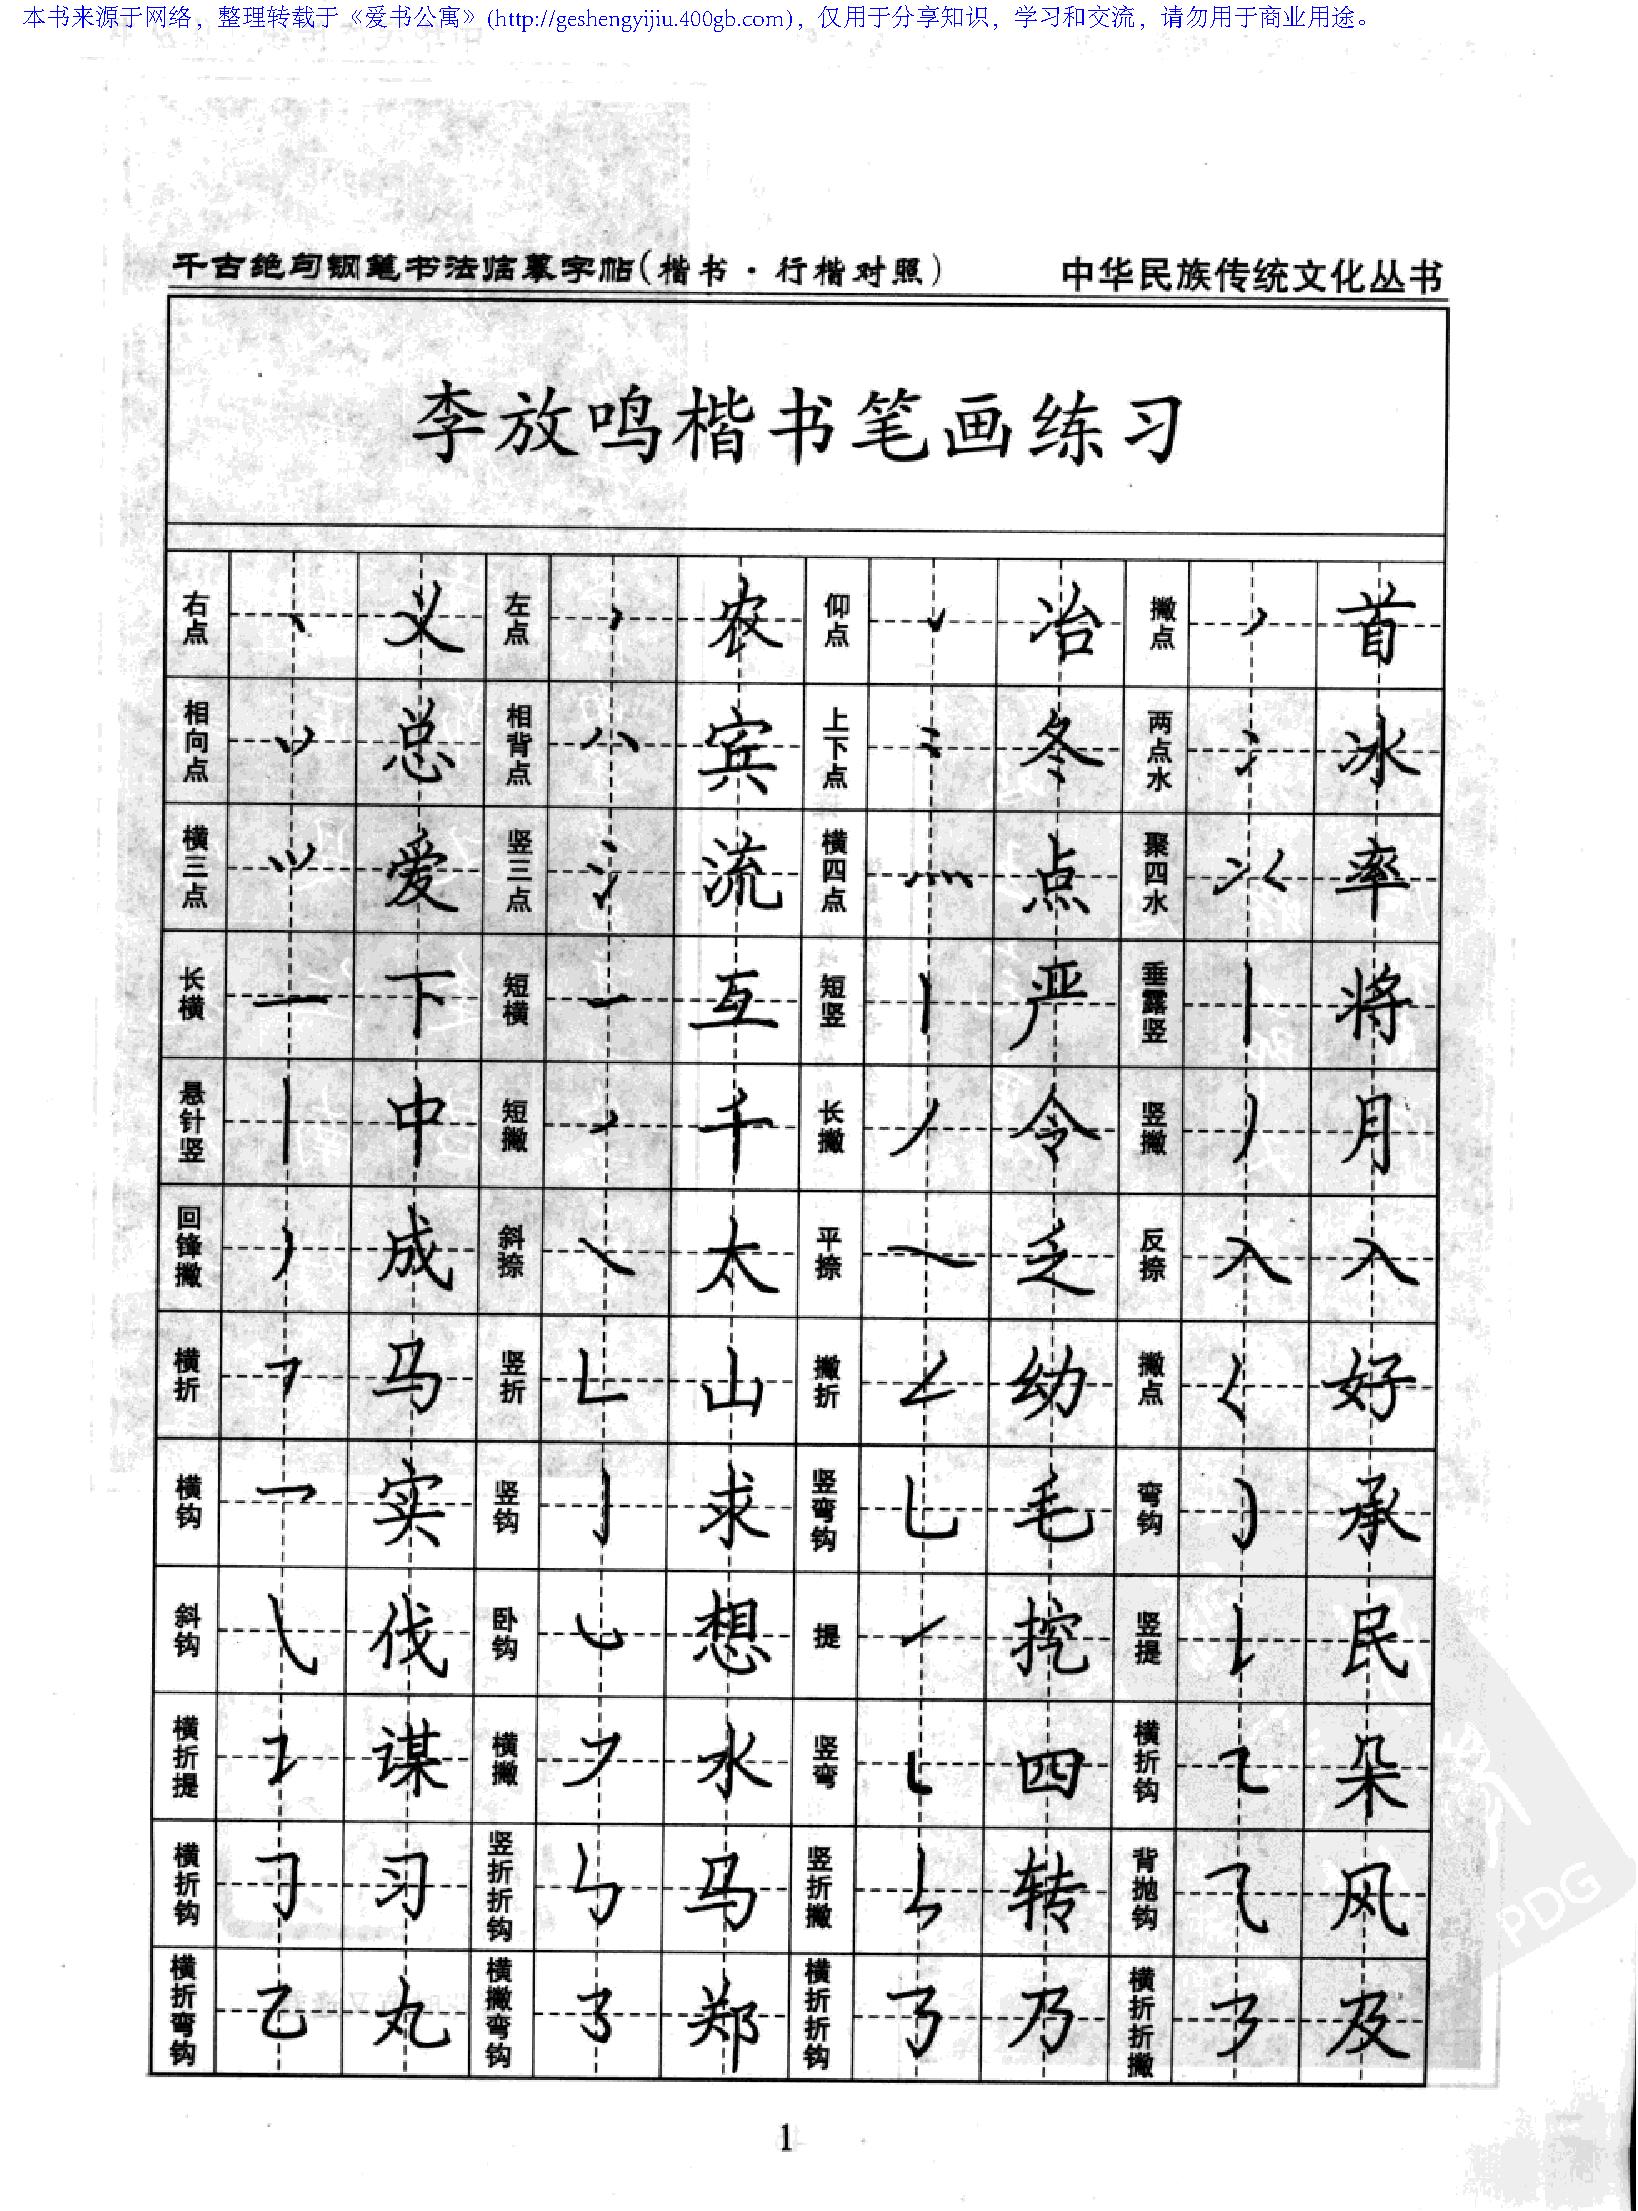 本书来源于网络，整理转载于《爱书公寓》(http://geshengyijiu.400gb.com)，仅用于分享知识，学习和交流，请勿用于商业用途。
千古绝句钢笔书法临摹字帖(楷书·行楷对照) 中华民族传统文化丛书
李放鸣楷书笔画练习
右点 丶 义 左点 农 仰点 冶 撇点 首
相向点 总 相背点 宾 上下点 冬 两点水 冫 冰
横三点 爱 竖三点 氵 流 横四点 灬 点 聚四水 率
长横 一 下 短横 一 互 短竖 丨 严 垂露竖 丨 将
悬针竖 丨 中 短撇 丿 千 长撇 丿 令 竖撇 丿 月
回锋撇 丿 成 斜捺 ㇏ 太 平捺 ㇏ 乏 反捺 入 入
横折 ㇕ 马 竖折 ㇗ 山 撇折 ㇜ 幼 撇点 ㇛ 好
横钩 ㇖ 实 竖钩 亅 求 竖弯钩 乚 毛 弯钩 ㇁ 承
斜钩 ㇂ 伐 卧钩 ㇃ 想 提 ㇀ 挖 竖提 ㇙ 民
横折提 ㇊ 谋 横撇 ㇇ 水 竖弯 ㇄ 四 横折钩 ㇍ 朵
横折钩 ㇆ 习 竖折折钩 ㇉ 马 竖折撇 ㇞ 转 背抛钩 ⺄ 风
横折弯钩 乙 丸 横撇弯钩 ㇌ 郑 横折折钩 ㇡ 乃 横折折撇 ㇋ 及
PDG
1